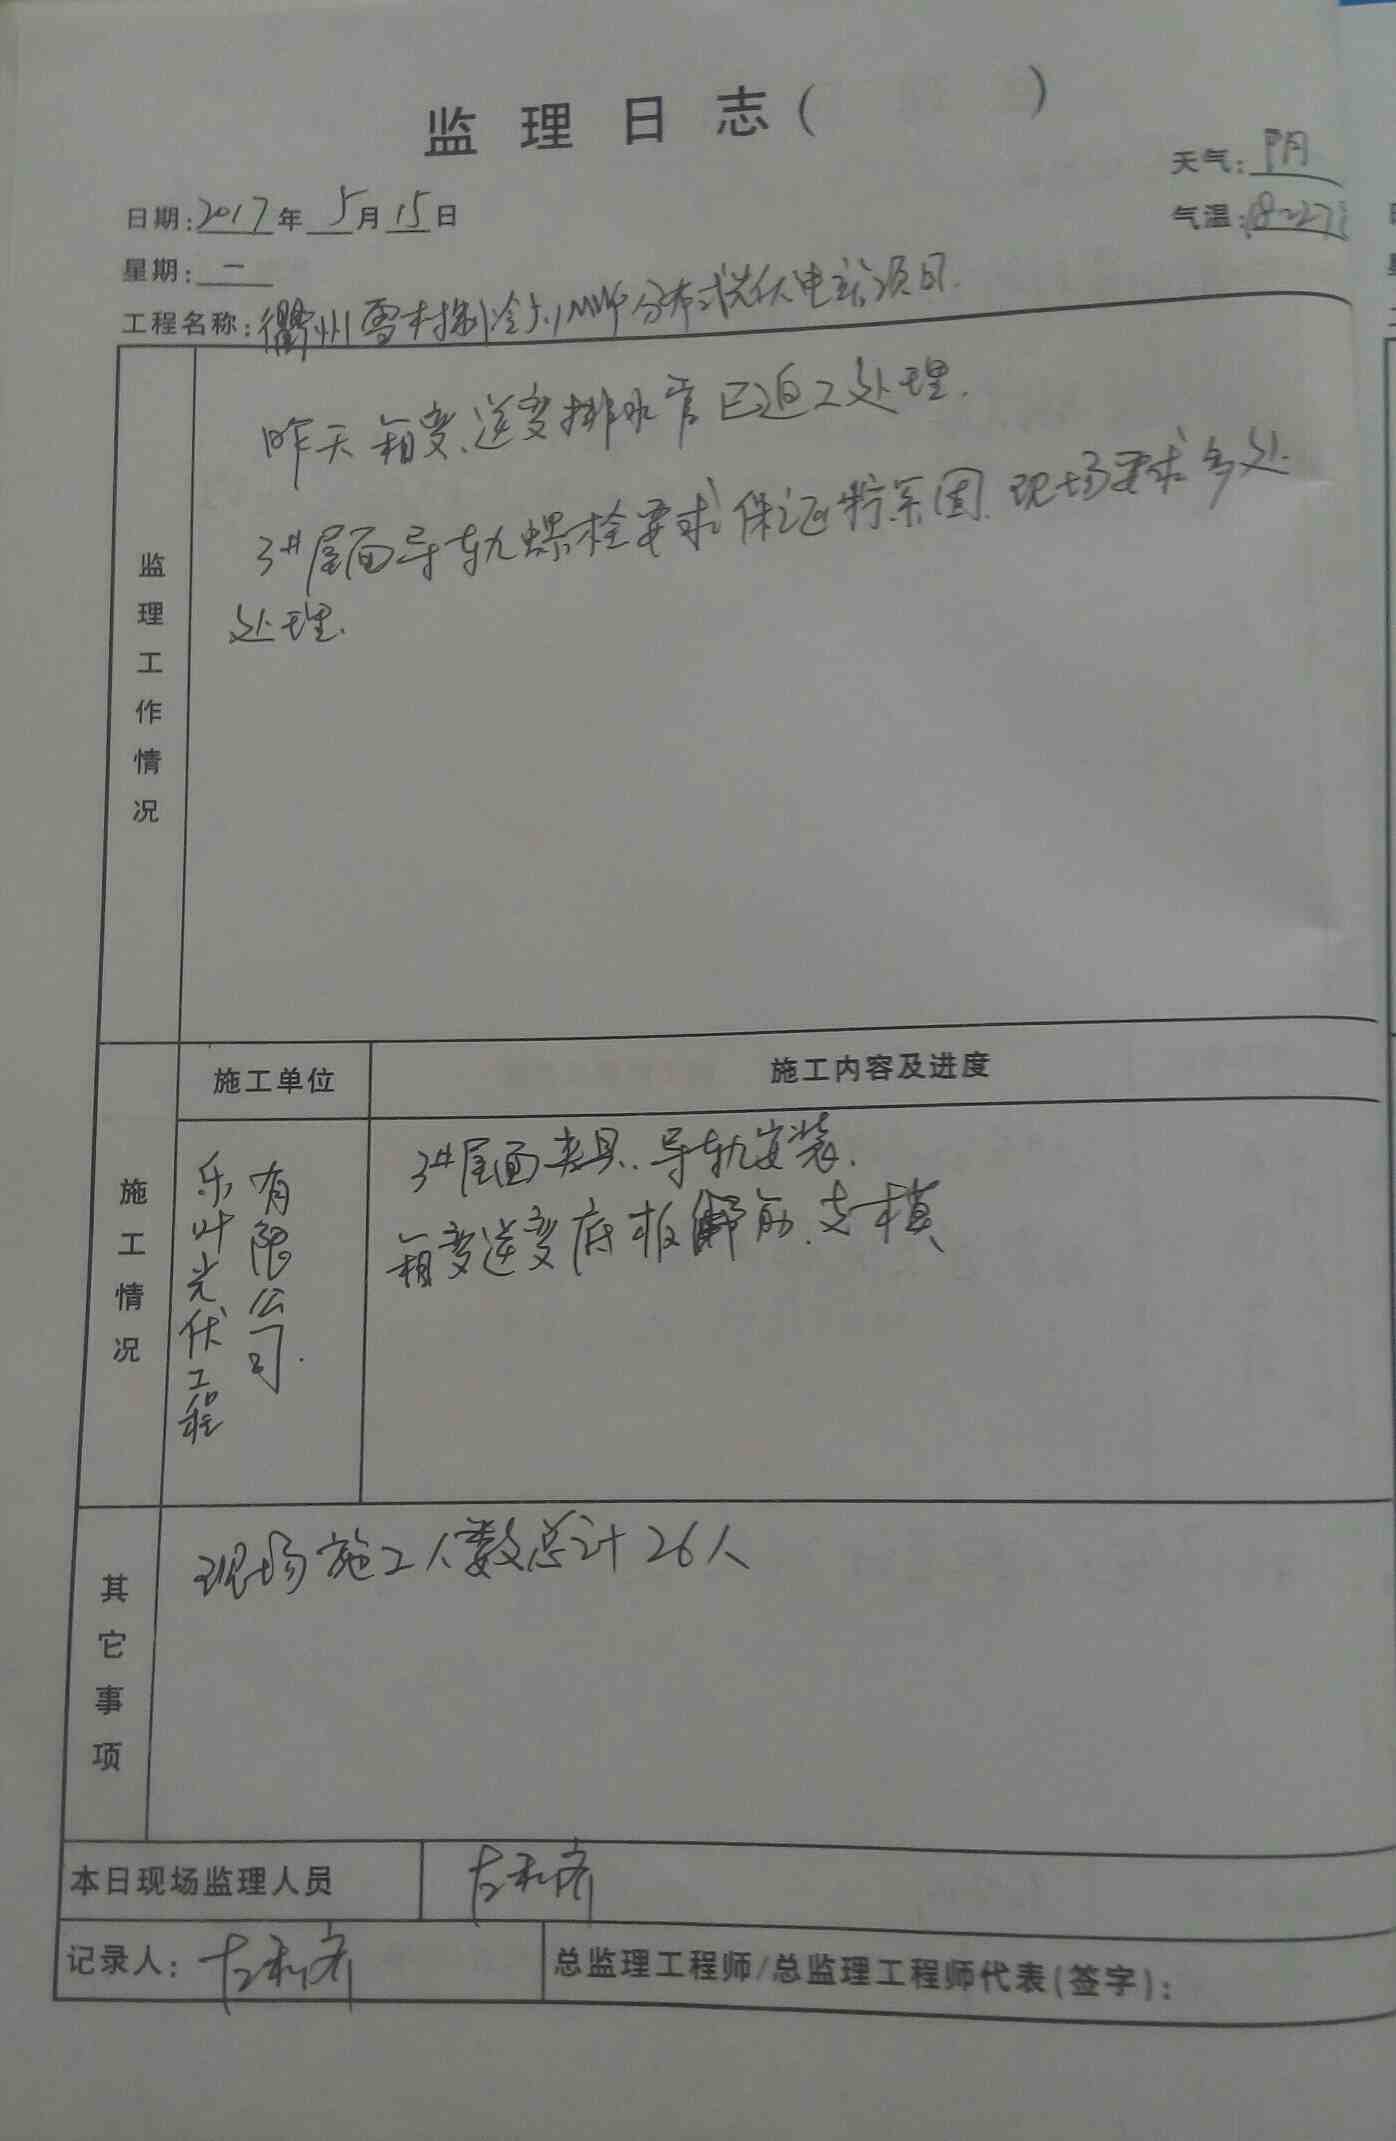 监理日志( )
天气: 阴
日期: 2017年 5月 15日
气温: 18~27
星期: 一
工程名称: 衢州雪村制冷5.1MWP分布式光伏电站项目.
监理工作情况
昨天箱变、逆变排水管已返工处理.
3#屋面导轨螺栓要求保证 紧固. 现场要求多处
处理.
施工情况
施工单位
施工内容及进度
乐叶光伏工程
有限公司.
3#屋面夹具、导轨安装.
箱变逆变底板 筋、支模
其它事项
现场施工人数总计26人
本日现场监理人员
记录人:
总监理工程师/总监理工程师代表(签字):